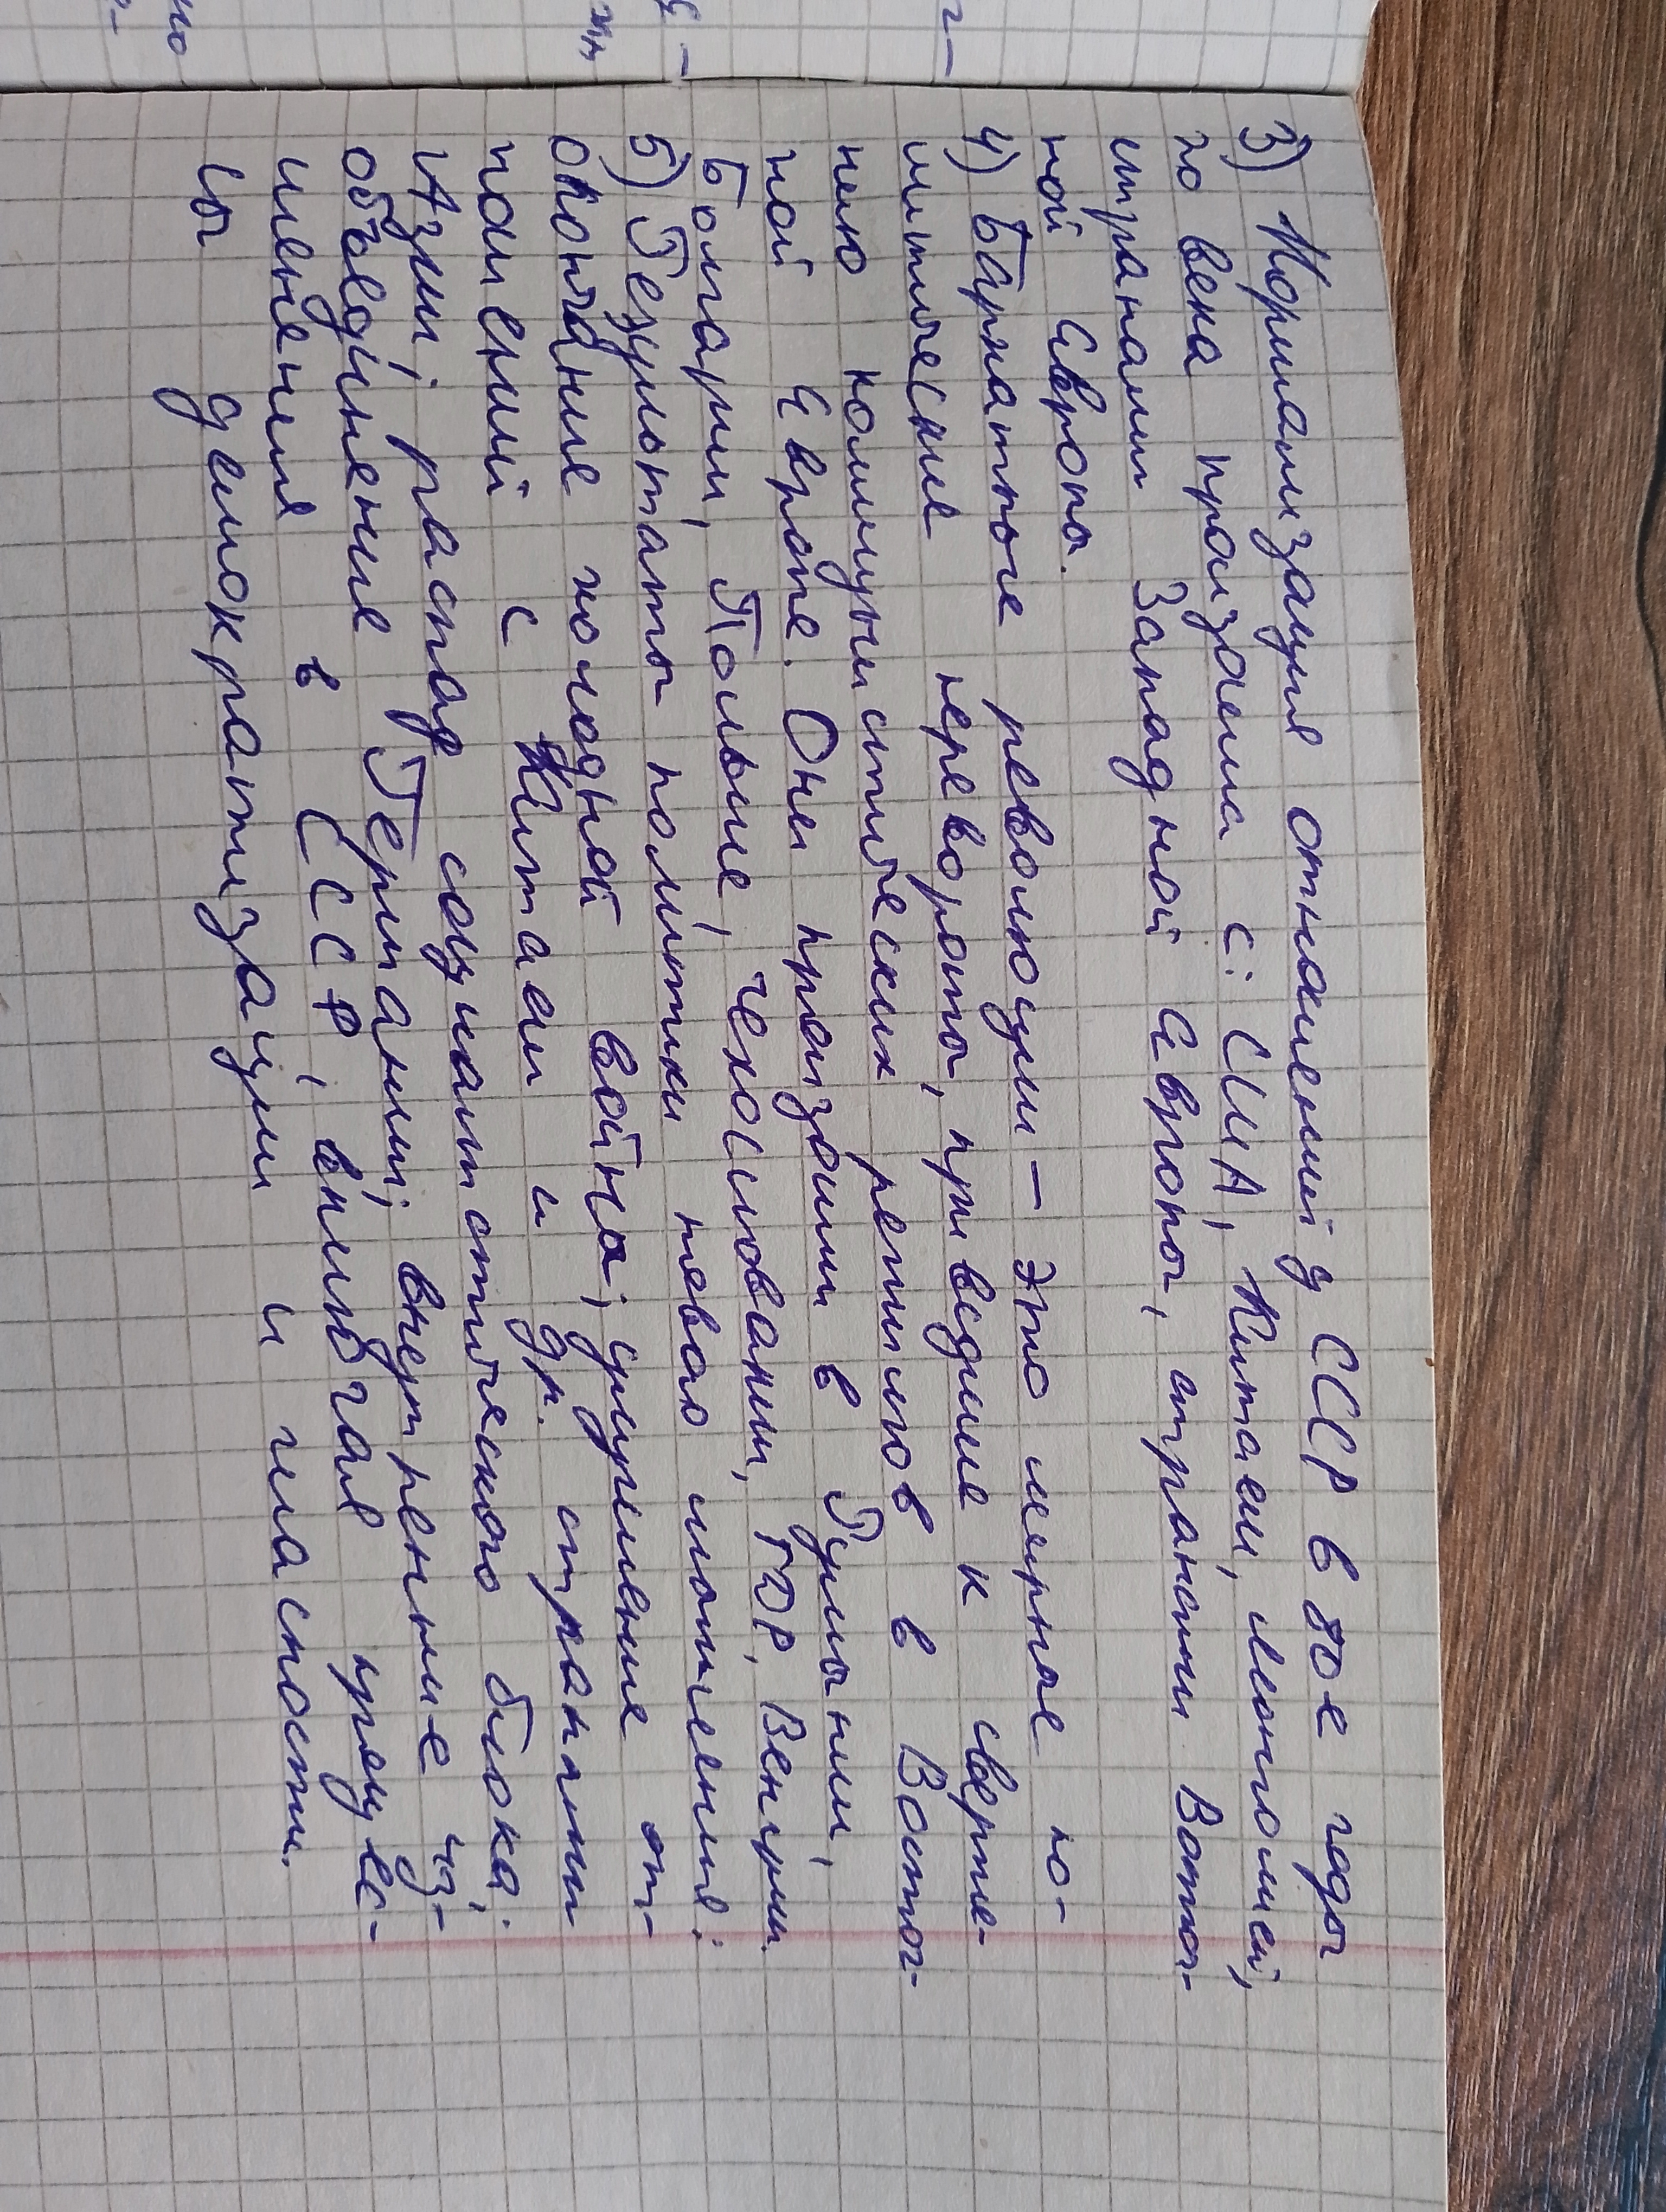 3) Нормализация отношений у СССР в 80е годы
20 века произошла с: США, Китаем, Монголией,
странами Западной Европы, странами Восточ-
ной Европы.
4) Бархатные революции – это мирные по-
литические перевороты, приведшие к сверже-
нию коммунистических режимов в Восточ-
ной Европе. Они произошли в Румынии,
Болгарии, Польше, Чехословакии, ГДР, Венгрии.
5) Результаты политики нового мышления:
окончание холодной войны; улучшение от-
ношений с Китаем и др. странами
Азии; распад социалистического блока;
объединение Германии; внутренние из-
менения в СССР, включая процес-
сы демократизации и гласности.